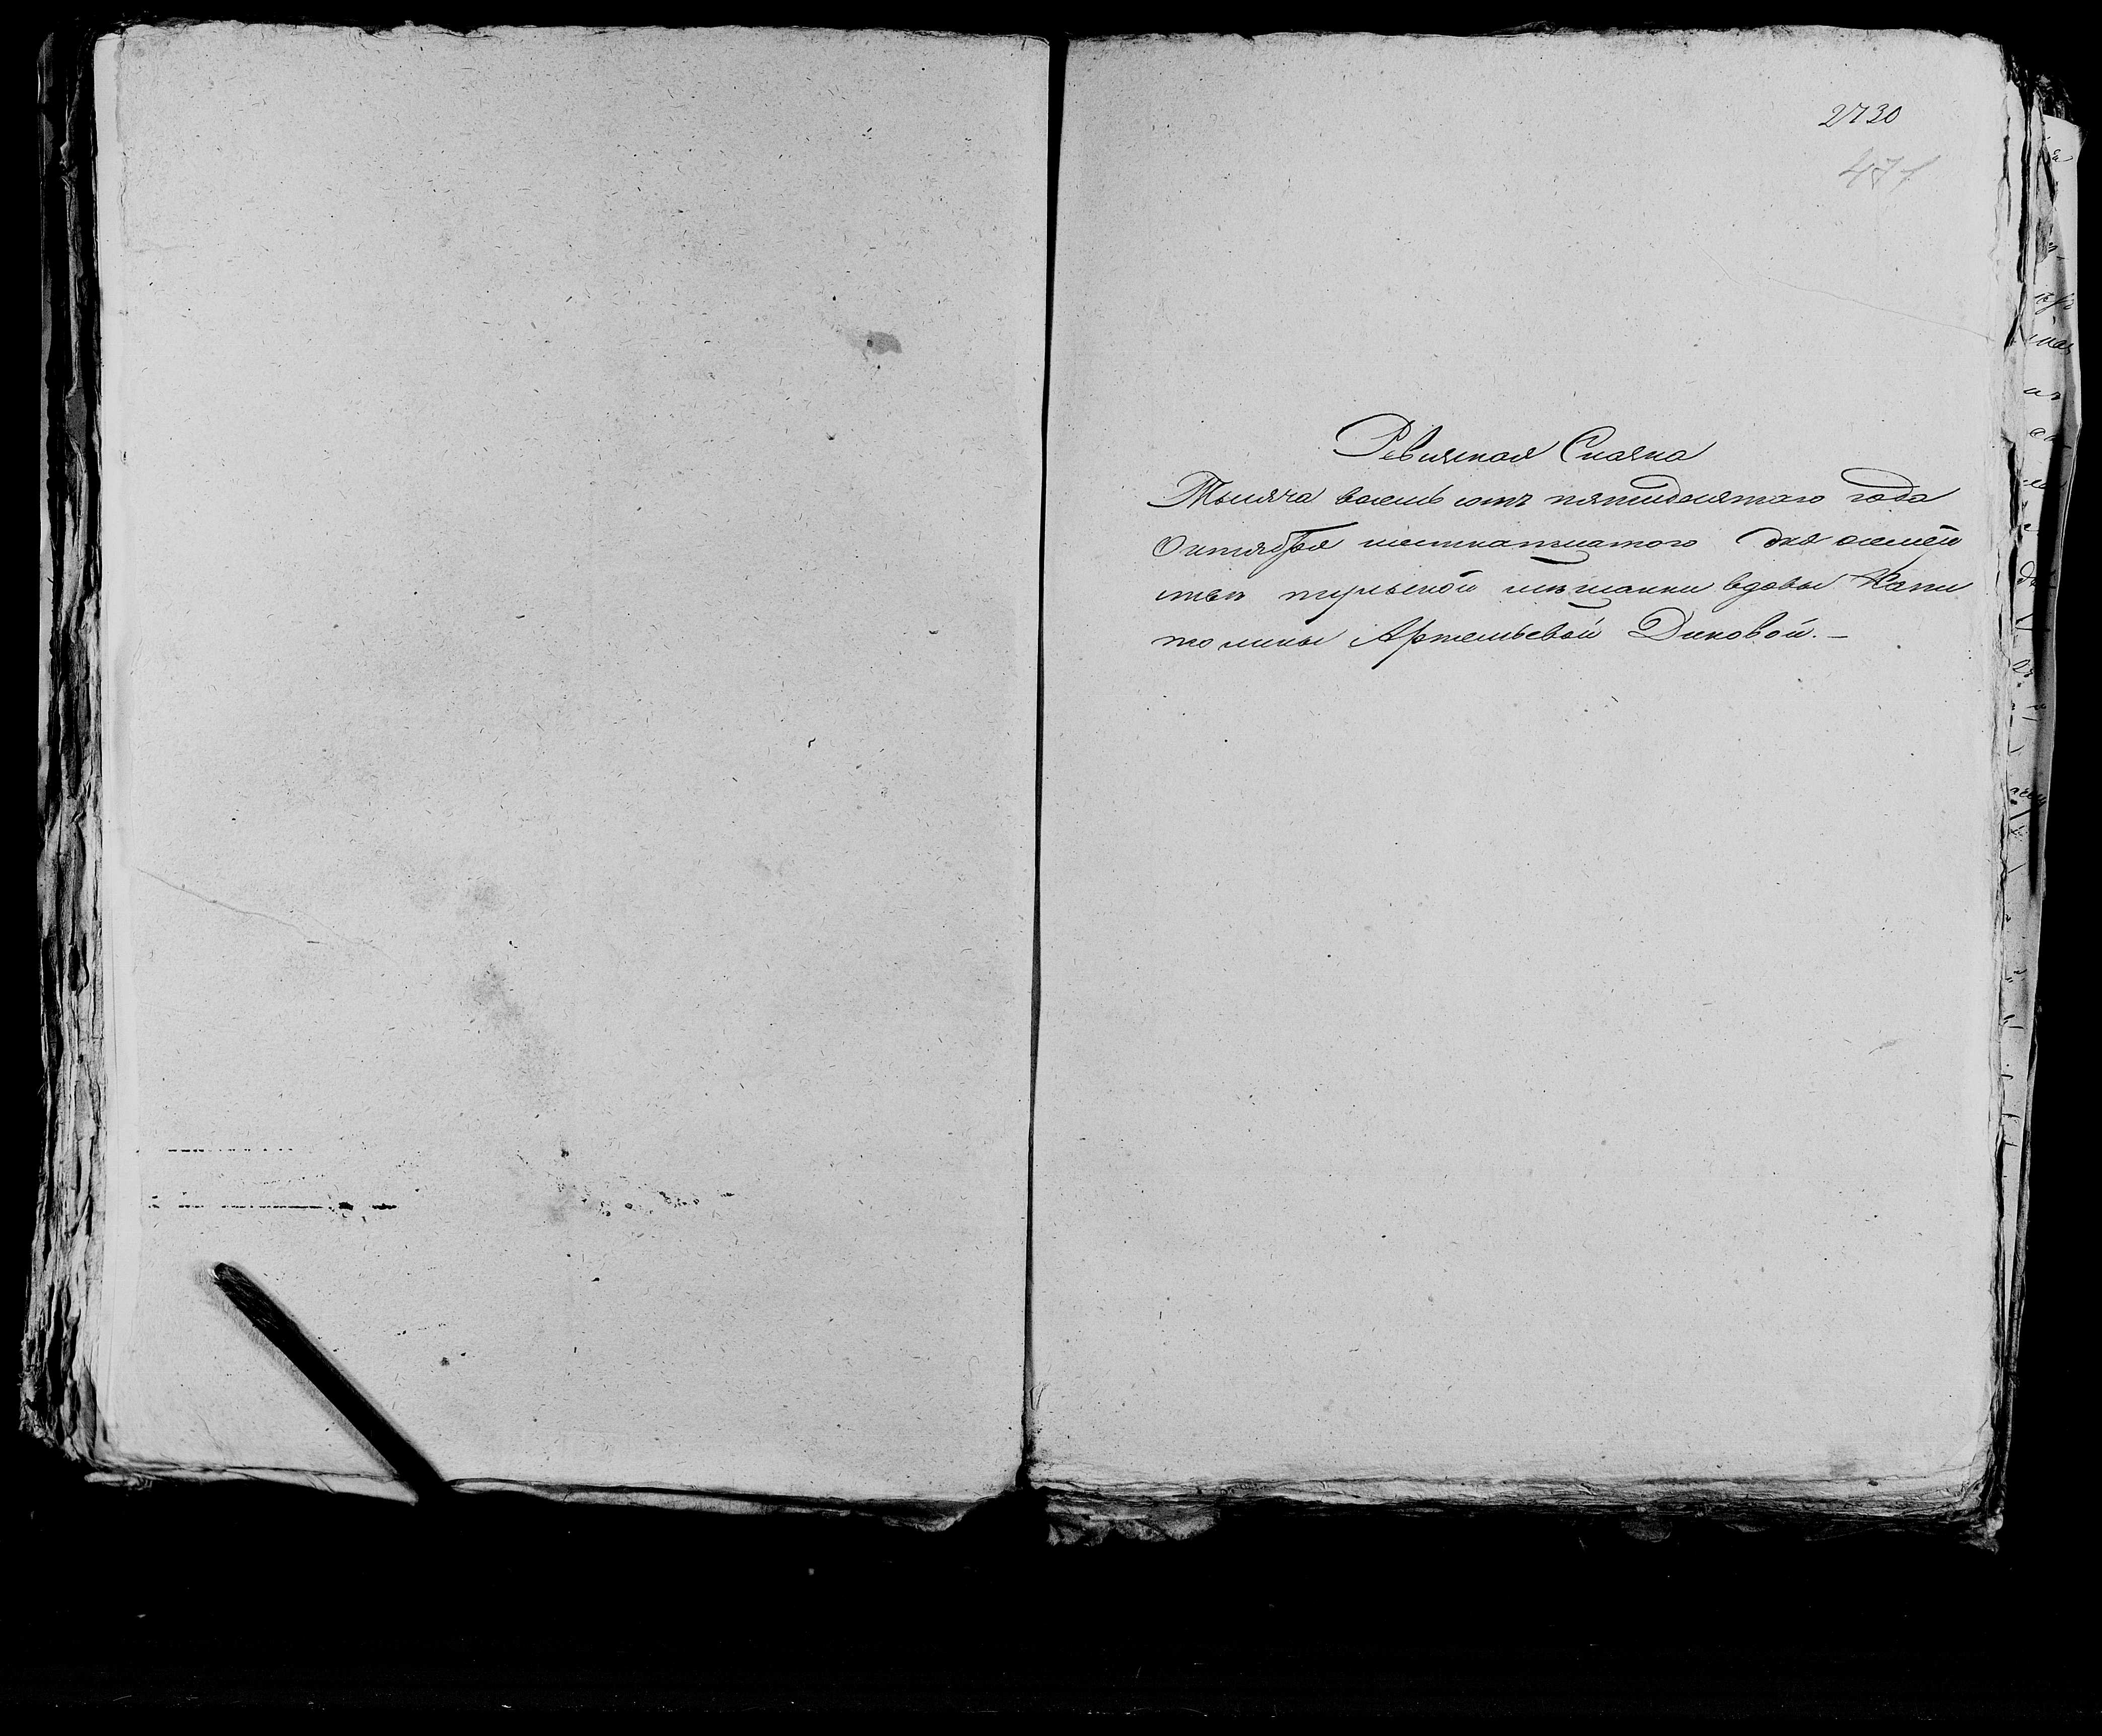 2730
471
Ревизская Сказка
Тысяча восемь сотъ пятидесятаго года
Октября шестнатцатого дня о семей
стве пермской мѣщанки вдовы Капи
толины Артемьевой Диковой.